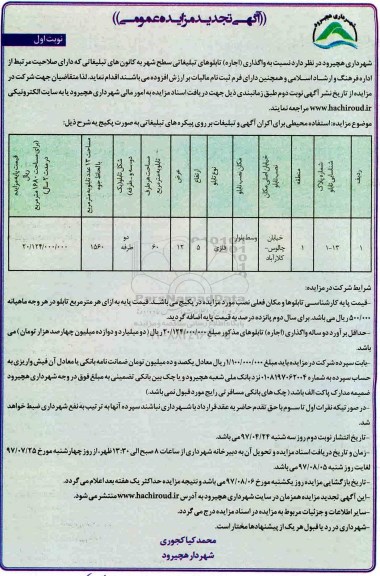 شهرداری هچیرود
((آگهی تجدید مزایده عمومی))
نوبت اول
شهرداری هچیرود در نظر دارد نسبت به واگذاری (اجاره) تابلوهای تبلیغاتی سطح شهر به کانون‌های تبلیغاتی که دارای صلاحیت مرتبط از
اداره فرهنگ و ارشاد اسلامی و همچنین دارای فرم ثبت نام مالیات بر ارزش افزوده می باشند اقدام نماید. لذا متقاضیان جهت شرکت در
مزایده از تاریخ نشر آگهی نوبت دوم طبق زمانبندی ذیل جهت دریافت اسناد مزایده به امور مالی شهرداری هچیرود یا به سایت الکترونیکی
www.hachiroud.ir مراجعه نمایند.
موضوع مزایده: استفاده محیطی برای اکران آگهی و تبلیغات بر روی پیکره های تبلیغاتی به صورت پکیج به شرح ذیل:
ردیف | شماره پلاک شناسایی تابلو | منطقه | خیابان اصلی مکان نصب تابلو | مکان نصب تابلو | نوع تابلو | ارتفاع | عرض | مساحت هر طرف تابلو به متر مربع | شکل تابلو (یک، دو، سه و ... طرفه) | مساحت ۱۳ عدد تابلو به متر مربع با لحاظ خود | قیمت پایه مزایده ریال (برای مساحت ۱۶۸۰ متر مربع در مدت ۲ سال)
۱ | ۱-۱۳ | ۱ | خیابان چالوس- کلارآباد | وسط بلوار | فلزی | ۵ | ۱۲ | ۶۰ | دو طرفه | ۱۵۶۰ | ۲۰/۱۲۴/۰۰۰/۰۰۰
شرایط شرکت در مزایده:
-قیمت پایه کارشناسی تابلوها و مکان فعلی نصب مورد مزایده در پکیج می باشد. قیمت پایه به ازای هر متر مربع تابلو در هر وجه ماهیانه
۵۰۰/۰۰۰ ریال می باشد. برای سال دوم پانزده درصد به قیمت پایه اضافه گردید.
-حداقل برآورد دو ساله واگذاری (اجاره) تابلوهای مذکور مبلغ ۲۰/۱۲۴/۰۰۰/۰۰۰ ریال (دو میلیارد و دوازده میلیون چهارصد هزار تومان) می
باشد.
-بابت سپرده شرکت در مزایده باید مبلغ ۱/۱۰۰/۰۰۰/۰۰۰ ریال معادل یکصد و ده میلیون تومان ضمانت نامه بانکی یا معادل آن فیش واریزی به
حساب سپرده به شماره ۰۱۰۸۱۹۷۰۶۲۰۰۴ نزد بانک ملی شعبه هچیرود و یا چک بین بانکی تضمینی به مبلغ فوق در وجه شهرداری هچیرود
ضمیمه مدارک پاکت الف باشد. (چک های بانکی مسافرتی رایج مورد قبول نمی باشد.)
-در صورتیکه نفرات اول تا سوم با حق تقدم حاضر به عقد قرارداد با شهرداری نباشند سپرده آنها به ترتیب به نفع شهرداری ضبط خواهد
شد.
-تاریخ انتشار نوبت دوم روز سه شنبه ۹۷/۰۴/۲۴ می باشد.
-زمان و تاریخ دریافت اسناد مزایده و تحویل آن به دبیرخانه شهرداری از ساعات ۸ صبح الی ۱۳:۳۰ ظهر، از روز چهارشنبه مورخ ۹۷/۰۷/۲۵
لغایت روز شنبه ۹۷/۰۸/۰۵ می باشد.
-تاریخ بازگشایی مزایده روز یکشنبه مورخ ۹۷/۰۸/۰۶ می باشد و نتیجه مزایده حداکثر یک هفته بعد اعلام می گردد.
-این آگهی تجدید مزایده همزمان در سایت شهرداری هچیرود به آدرس www.hachiroud.ir منتشر می شود.
-سایر اطلاعات و جزئیات مربوط به مزایده در اسناد مزایده درج می گردد.
-شهرداری در رد یا قبول هر یک از پیشنهادها مختار است.
محمد کیا کجوری
شهردار هچیرود